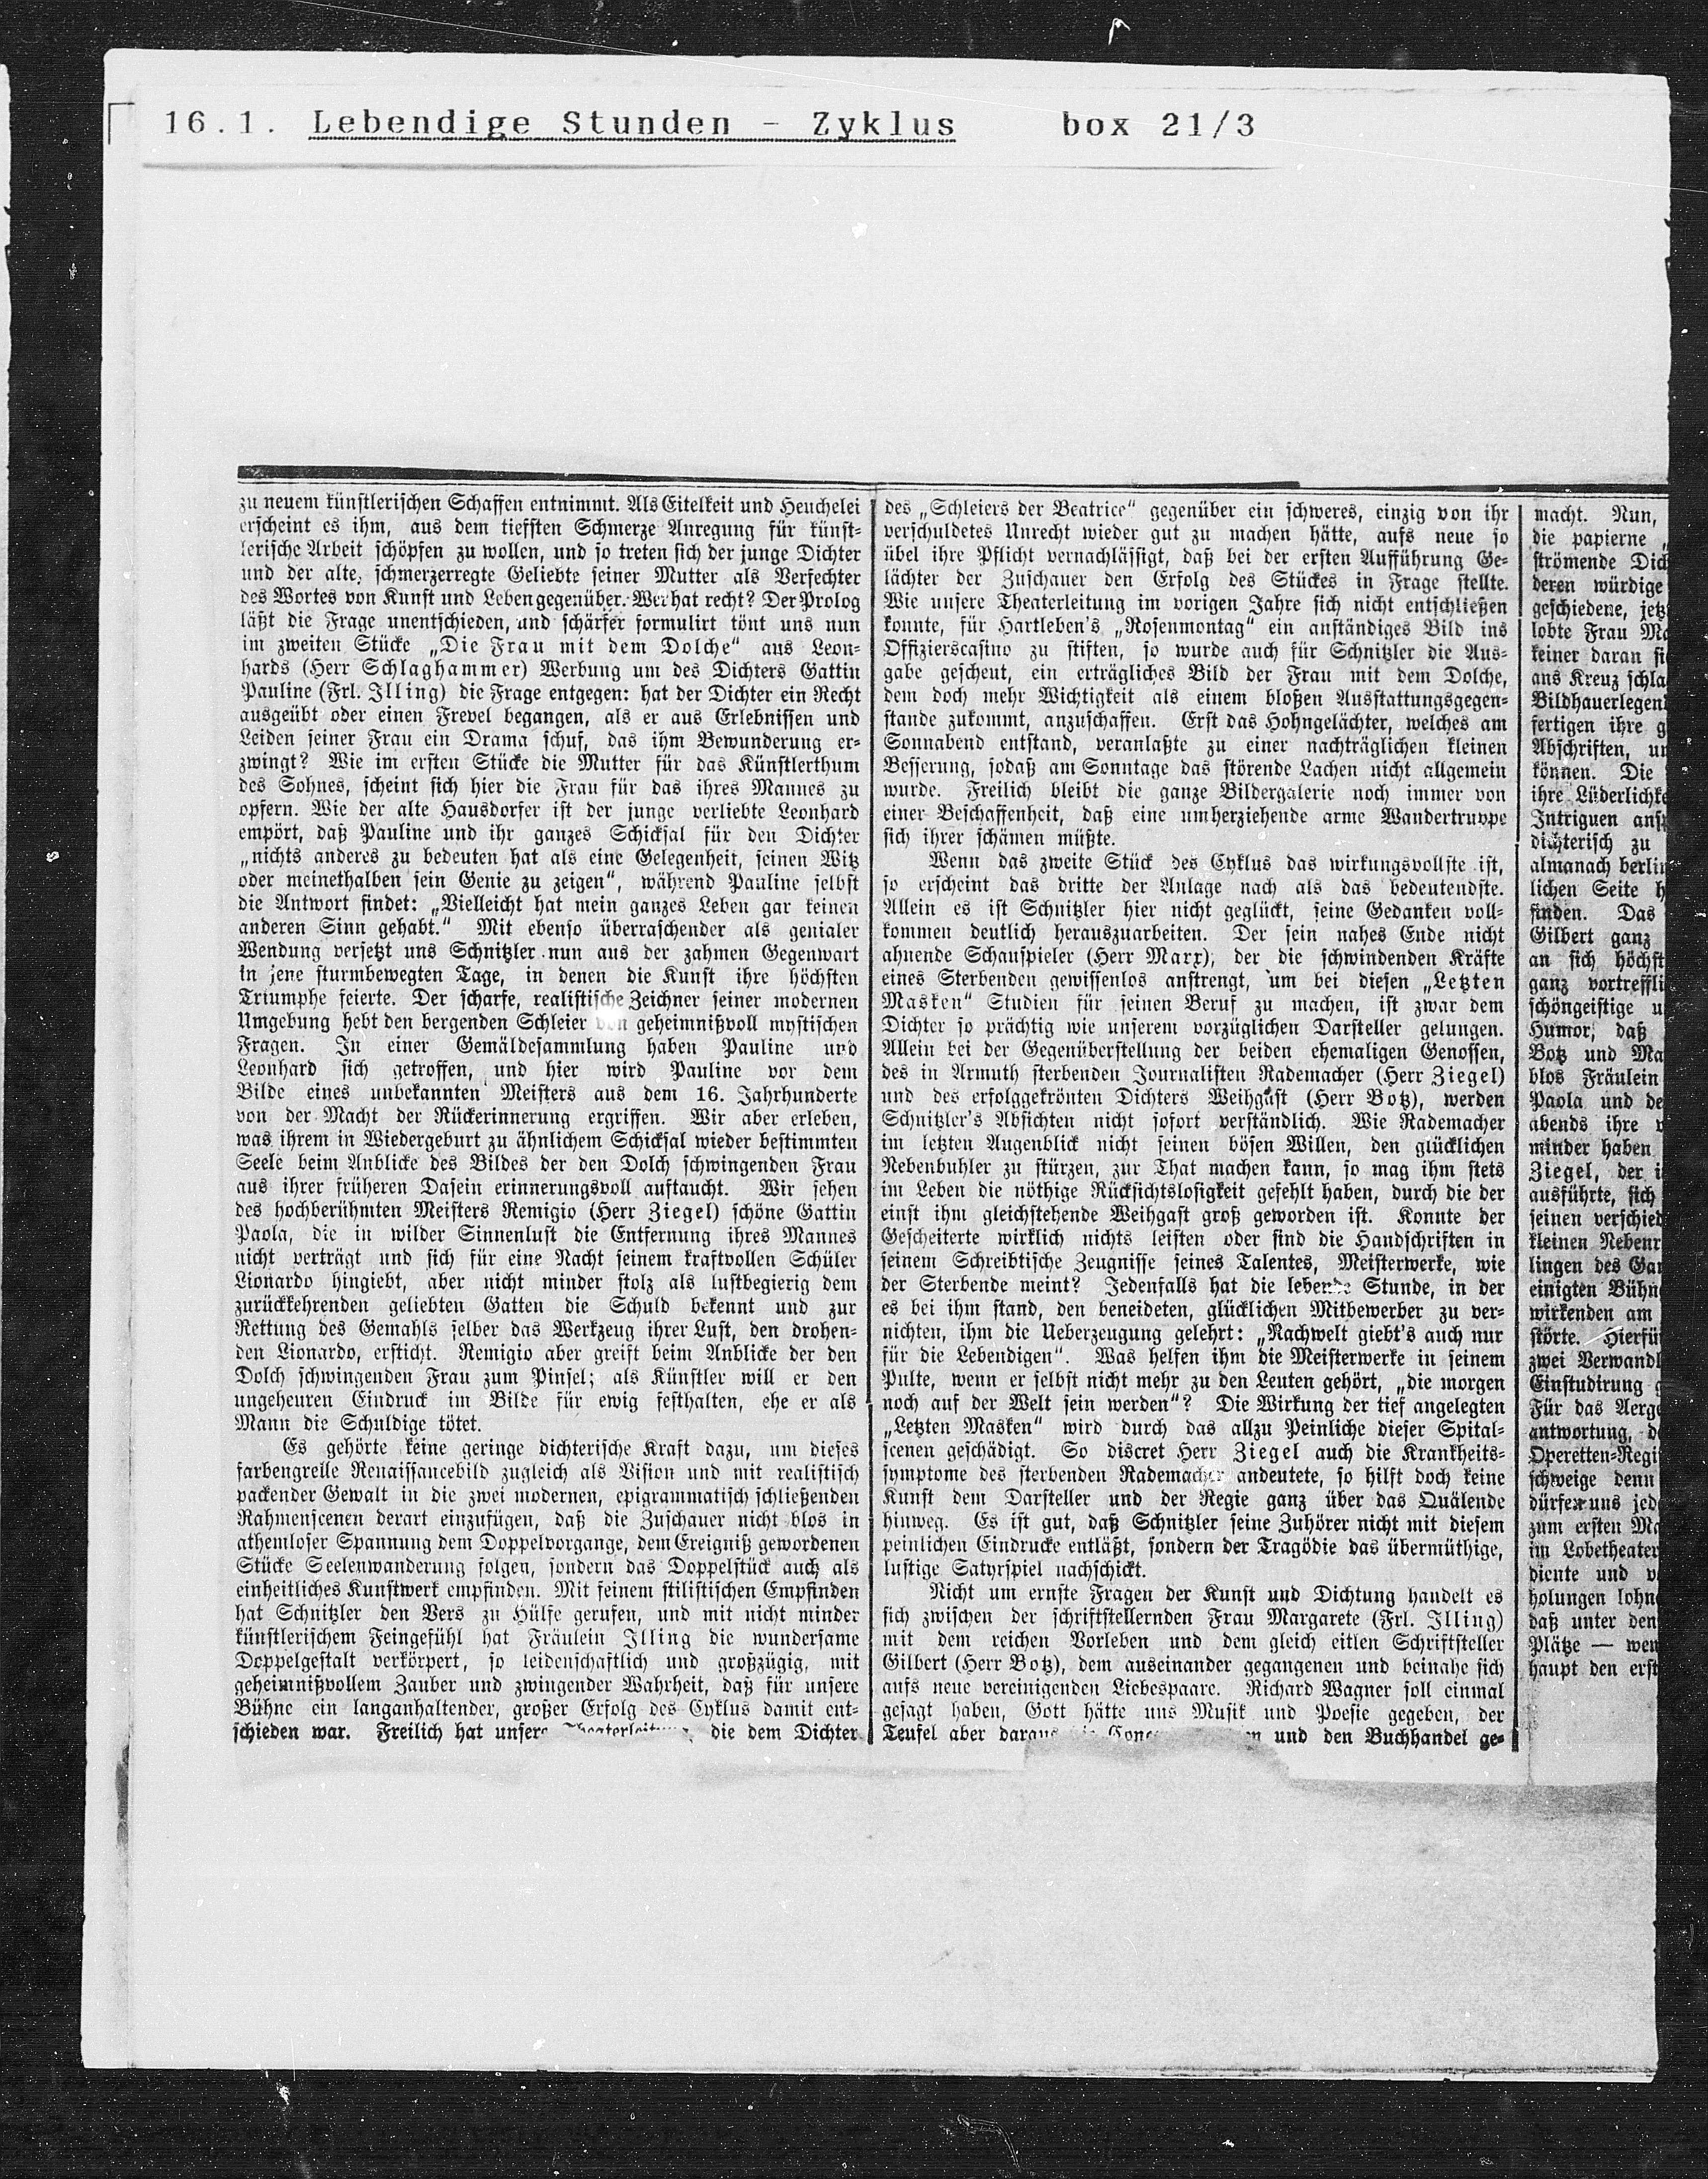 16.1. Lebendige Stunden - Zyklus box 21/3
zu neuem künstlerischen Schaffen entnimmt. Als Eitelkeit und Heuchelei
erscheint es ihm, aus dem tiefsten Schmerze Anregung für künst-
lerische Arbeit schöpfen zu wollen, und so treten sich der junge Dichter
und der alte, schmerzerregte Geliebte seiner Mutter als Verfechter
des Wortes von Kunst und Leben gegenüber. Wer hat recht? Der Prolog
läßt die Frage unentschieden, und schärfer formulirt tönt uns nun
im zweiten Stücke „Die Frau mit dem Dolche“ aus Leon-
hards (Herr Schlaghammer) Werbung um des Dichters Gattin
Pauline (Frl. Illing) die Frage entgegen: hat der Dichter ein Recht
ausgeübt oder einen Frevel begangen, als er aus Erlebnissen und
Leiden seiner Frau ein Drama schuf, das ihm Bewunderung er-
zwingt? Wie im ersten Stücke die Mutter für das Künstlerthum
des Sohnes, scheint sich hier die Frau für das ihres Mannes zu
opfern. Wie der alte Hausdorfer ist der junge verliebte Leonhard
empört, daß Pauline und ihr ganzes Schicksal für den Dichter
„nichts anderes zu bedeuten hat als eine Gelegenheit, seinen Witz
oder meinethalben sein Genie zu zeigen“, während Pauline selbst
die Antwort findet: „Vielleicht hat mein ganzes Leben gar keinen
anderen Sinn gehabt.“ Mit ebenso überraschender als genialer
Wendung versetzt uns Schnitzler nun aus der zahmen Gegenwart
in jene sturmbewegten Tage, in denen die Kunst ihre höchsten
Triumphe feierte. Der scharfe, realistische Zeichner seiner modernen
Umgebung hebt den bergenden Schleier von geheimnißvoll mystischen
Fragen. In einer Gemäldesammlung haben Pauline und
Leonhard sich getroffen, und hier wird Pauline vor dem
Bilde eines unbekannten Meisters aus dem 16. Jahrhunderte
von der Macht der Rückerinnerung ergriffen. Wir aber erleben,
was ihrem in Wiedergeburt zu ähnlichem Schicksal wieder bestimmten
Seele beim Anblicke des Bildes der den Dolch schwingenden Frau
aus ihrer früheren Dasein erinnerungsvoll auftaucht. Wir sehen
des hochberühmten Meisters Remigio (Herr Ziegel) schöne Gattin
Paola, die in wilder Sinnenlust die Entfernung ihres Mannes
nicht verträgt und sich für eine Nacht seinem kraftvollen Schüler
Lionardo hingiebt, aber nicht minder stolz als lustbegierig dem
zurückkehrenden geliebten Gatten die Schuld bekennt und zur
Rettung des Gemahls selber das Werkzeug ihrer Lust, den drohen-
den Lionardo, ersticht. Remigio aber greift beim Anblicke der den
Dolch schwingenden Frau zum Pinsel; als Künstler will er den
ungeheuren Eindruck im Bilde für ewig festhalten, ehe er als
Mann die Schuldige tötet.
Es gehörte keine geringe dichterische Kraft dazu, um dieses
farbengrelle Renaissancebild zugleich als Vision und mit realistisch
packender Gewalt in die zwei modernen, epigrammatisch schließenden
Rahmenscenen derart einzufügen, daß die Zuschauer nicht blos in
athemloser Spannung dem Doppelvorgange, dem Ereigniß gewordenen
Stücke Seelenwanderung folgen, sondern das Doppelstück auch als
einheitliches Kunstwerk empfinden. Mit feinem stilistischen Empfinden
hat Schnitzler den Vers zu Hülfe gerufen, und mit nicht minder
künstlerischem Feingefühl hat Fräulein Illing die wundersame
Doppelgestalt verkörpert, so leidenschaftlich und großzügig, mit
geheimnißvollem Zauber und zwingender Wahrheit, daß für unsere
Bühne ein langanhaltender, großer Erfolg des Cyklus damit ent-
schieden war. Freilich hat unsere Theaterleitung, die dem Dichter
des „Schleiers der Beatrice“ gegenüber ein schweres, einzig von ihr
verschuldetes Unrecht wieder gut zu machen hätte, aufs neue so
übel ihre Pflicht vernachlässigt, daß bei der ersten Aufführung Ge-
lächter der Zuschauer den Erfolg des Stückes in Frage stellte.
Wie unsere Theaterleitung im vorigen Jahre sich nicht entschließen
konnte, für Hartleben's „Rosenmontag“ ein anständiges Bild ins
Offizierscasino zu stiften, so wurde auch für Schnitzler die Aus-
gabe gescheut, ein erträgliches Bild der Frau mit dem Dolche,
dem doch mehr Wichtigkeit als einem bloßen Ausstattungsgegen-
stande zukommt, anzuschaffen. Erst das Hohngelächter, welches am
Sonnabend entstand, veranlaßte zu einer nachträglichen kleinen
Besserung, sodaß am Sonntage das störende Lachen nicht allgemein
wurde. Freilich bleibt die ganze Bildergalerie noch immer von
einer Beschaffenheit, daß eine umherziehende arme Wandertruppe
sich ihrer schämen müßte.
Wenn das zweite Stück des Cyklus das wirkungsvollste ist,
so erscheint das dritte der Anlage nach als das bedeutendste.
Allein es ist Schnitzler hier nicht geglückt, seine Gedanken voll-
kommen deutlich herauszuarbeiten. Der sein nahes Ende nicht
ahnende Schauspieler (Herr Marx), der die schwindenden Kräfte
eines Sterbenden gewissenlos anstrengt, um bei diesen „Letzten
Masken“ Studien für seinen Beruf zu machen, ist zwar dem
Dichter so prächtig wie unserem vorzüglichen Darsteller gelungen.
Allein bei der Gegenüberstellung der beiden ehemaligen Genossen,
des in Armuth sterbenden Journalisten Rademacher (Herr Ziegel)
und des erfolggekrönten Dichters Weihgast (Herr Botz), werden
Schnitzler's Absichten nicht sofort verständlich. Wie Rademacher
im letzten Augenblick nicht seinen bösen Willen, den glücklichen
Nebenbuhler zu stürzen, zur That machen kann, so mag ihm stets
im Leben die nöthige Rücksichtslosigkeit gefehlt haben, durch die der
einst ihm gleichstehende Weihgast groß geworden ist. Konnte der
Gescheiterte wirklich nichts leisten oder sind die Handschriften in
seinem Schreibtische Zeugnisse seines Talentes, Meisterwerke, wie
der Sterbende meint? Jedenfalls hat die lebende Stunde, in der
es bei ihm stand, den beneideten, glücklichen Mitbewerber zu ver-
nichten, ihm die Ueberzeugung gelehrt: „Nachwelt giebt's auch nur
für die Lebendigen“. Was helfen ihm die Meisterwerke in seinem
Pulte, wenn er selbst nicht mehr zu den Leuten gehört, „die morgen
noch auf der Welt sein werden“? Die Wirkung der tief angelegten
„Letzten Masken“ wird durch das allzu Peinliche dieser Spital-
scenen geschädigt. So discret Herr Ziegel auch die Krankheits-
symptome des sterbenden Rademacher andeutete, so hilft doch keine
Kunst dem Darsteller und der Regie ganz über das Quälende
hinweg. Es ist gut, daß Schnitzler seine Zuhörer nicht mit diesem
peinlichen Eindrucke entläßt, sondern der Tragödie das übermüthige,
lustige Satyrspiel nachschickt.
Nicht um ernste Fragen der Kunst und Dichtung handelt es
sich zwischen der schriftstellernden Frau Margarete (Frl. Illing)
mit dem reichen Vorleben und dem gleich eitlen Schriftsteller
Gilbert (Herr Botz), dem auseinander gegangenen und beinahe sich
aufs neue vereinigenden Liebespaare. Richard Wagner soll einmal
gesagt haben, Gott hätte uns Musik und Poesie gegeben, der
Teufel aber daraus und den Buchhandel ge-
macht. Nun,
die papierne „
strömende Dich
deren würdige
geschiedene, jetz
lobte Frau Ma
keiner daran si
ans Kreuz schla
Bildhauerlegen
fertigen ihre g
Abschriften, un
können. Die
ihre Lüderlichke
Intriguen ansp
dichterisch zu
almanach berlin
lichen Seite h
finden. Das
Gilbert ganz
an sich höchst
ganz vortreffli
schöngeistige u
Humor, daß
Botz und Ma
blos Fräulein
Paola und de
abends ihre v
minder haben
Ziegel, der i
ausführte, sich
seinen verschied
kleinen Nebenr
lingen des Gan
einigten Bühn
wirkenden am
störte. Hierfü
zwei Verwandl
Einstudirung g
Für das Aerge
antwortung, d
Operetten-Regi
schweige denn
dürfen uns jed
zum ersten Ma
im Lobetheater
diente und v
holungen lohn
daß unter den
Plätze — wen
haupt den erst